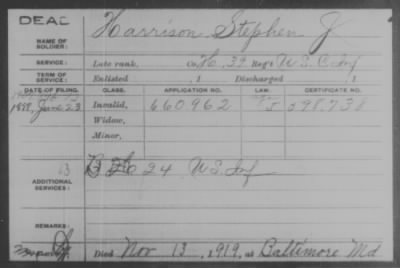 DEAD
Harrison Stephen J
NAME OF SOLDIER:
SERVICE: Late rank, Co. H, 39 Reg't U.S.C. Inf
TERM OF SERVICE: Enlisted , 1 Discharged , 1
DATE OF FILING. CLASS. APPLICATION NO. LAW. CERTIFICATE NO.
1898, June 23 Invalid, 660962 598,738
Widow,
Minor,
ADDITIONAL SERVICES: 24 U.S. Inf
REMARKS:
Died Nov 13, 1919, at Baltimore Md